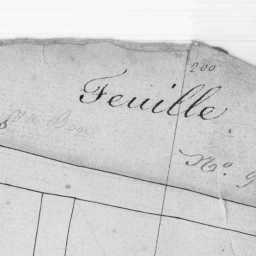 200
Feuille
No. 9